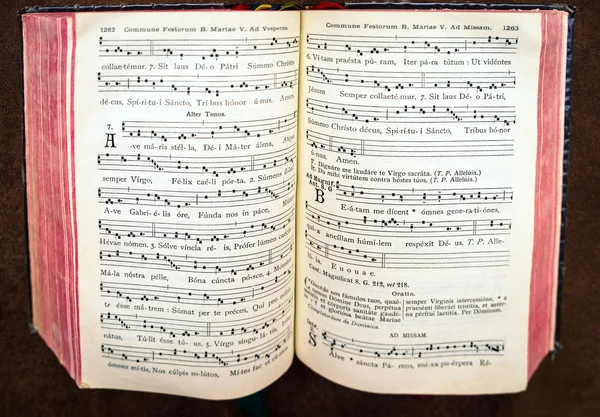 1262 Commune Festorum B. Mariæ V. Ad Vesperas.
collaetémur. 7. Sit laus Dé- o Pátri Súmmo Christo
dé-cus, Spi-rí-tu-i Sáncto, Tríbus hónor ú-nus. Amen.
Alter Tonus.
7.
A-ve má-ris stél-la, Dé- i Má-ter álma,
semper Vírgo, Fé-lix caé-li pór-ta. 2. Súmens íl-
A-ve Gabri-é-lis óre, Fúnda nos in páce,
Hévae nómen. 3. Sólve víncla ré- is, Prófer lúmen
Má-la nóstra pélle, Bóna cúncta pó-sce. 4.
te ésse má-trem : Súmat per te préces, Qui pro
nátus, Tú-lit ésse tú- us. 5. Vírgo singu- lá-ris,
ómnes mí-tis, Nos cúlpis so-lútos, Mí-tes fac et
Commune Festorum B. Mariæ V. Ad Missam. 1263
6. Ví-tam praésta pú- ram, Iter pá-ra tútum : Ut vidéntes
Jésum Semper collaeté-mur. 7. Sit laus Dé- o Pá-tri,
Súmmo Chrísto décus, Spi-rí-tu- i Sáncto, Tríbus hónor
ú-nus. Amen.
℣. Dignáre me laudáre te Vírgo sacráta. (T. P. Allelúia.)
℟. Da mihi virtútem contra hóstes túos. (T. P. Allelúia.)
Ad Magnif.
Ant. 8. G
BE-á-tam me dícent * ómnes gene-ra-ti-ónes,
qui- a ancíllam húmi-lem respéxit Dé- us. T. P. Alle-
lú- ia. E u o u a e.
Cant. Magníficat 8. G. 212, vel 218.
Oratio.
COncéde nos fámulos tuos, quaé-
sumus Dómine Deus, perpétua
méntis et córporis sanitáte gaudé-
re : et gloriósa beátae Maríae
semper Vírginis intercessióne, * a
praesénti liberári tristítia, et aetér-
na pérfrui laetítia. Per Dóminum.
Completorium de Dominica.
AD MISSAM.
SAlve * sáncta Pá-rens, ení-xa pu-érpera Ré-